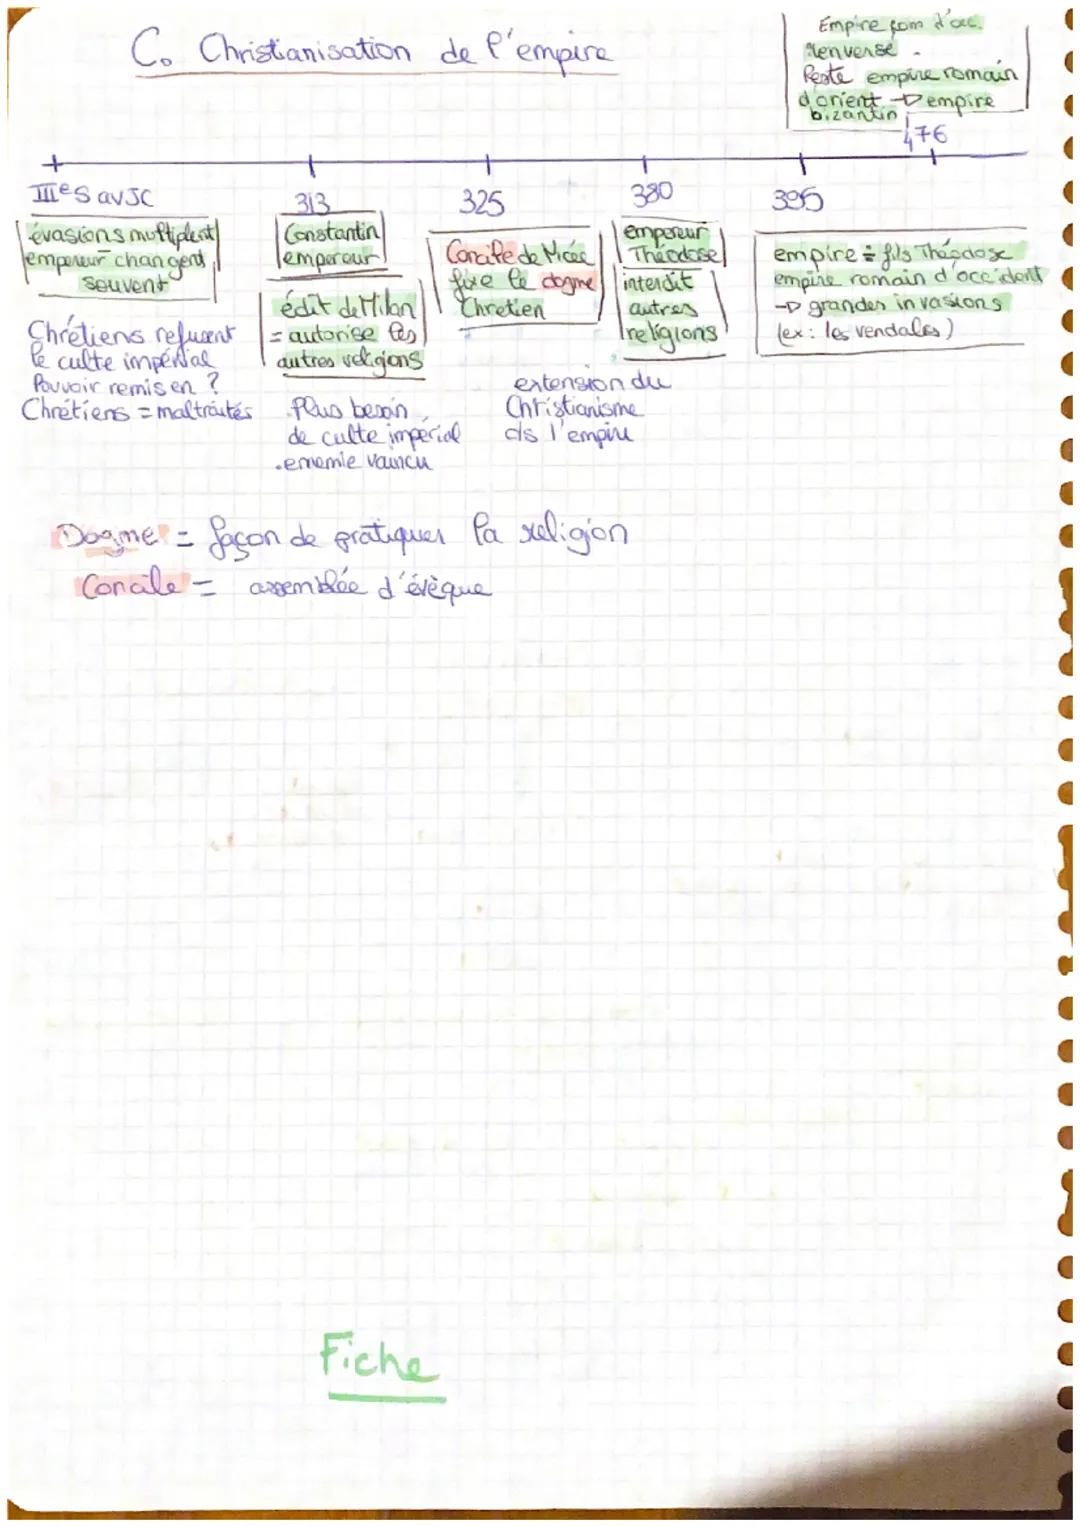 C. Christianisation de l'empire
Empire rom d'occ.
renversé.
Reste empire romain
d'orient → empire
bizantin
476
IIIeS av JC
313
325
380
395
évasions multiplent
empereur changent
souvent
Chrétiens refusent
le culte impérial
Pouvoir remis en ?
Chrétiens = maltraités
Constantin
empereur
édit de Milan
= autorise les
autres religions
Plus besoin
de culte impérial
.ennemie vaincu
Concile de Nicée
fixe le dogme
Chretien
extension du
Christianisme
ds l'empire
empereur
Théodose
interdit
autres
religions
empire ÷ fils Théodose
empire romain d'occident
→ grandes invasions
(ex: les vendales)
Dogme = façon de pratiquer la religion
Concile = assemblée d'évèque
Fiche